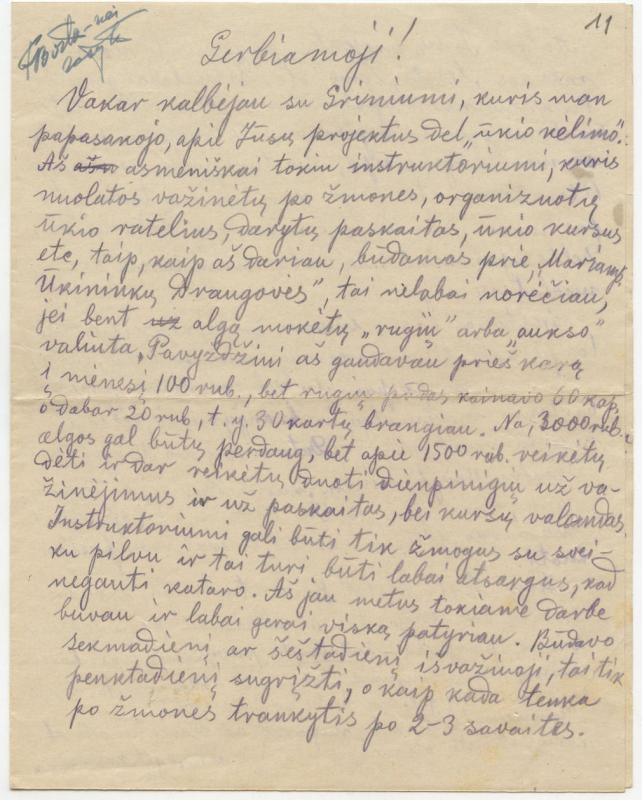 11
Gerbiamoji!
Vakar kalbėjau su Griniumi, kuris man
papasakojo, apie Jusų projektus del „ūkio kėlimo“.
Aš ašu asmeniškai tokiu instruktoriumi, kuris
nuolatos važinėtų po žmones, organizuotų
ūkio ratelius, darytų paskaitas, ūkio kursus
etc, taip, kaip aš dariau, būdamas prie „Marianp.
Ūkininkų Draugovės“, tai nelabai norėčiau,
jei bent už algą mokėtų „rugių“ arba „aukso“
valiuta. Pavyzdžini aš gaudavau prieš karą
į mėnesį 100 rub., bet rugių pūdas kainavo 60 kap,
o dabar 20 rub, t. y. 30 kartų brangiau. Na, 3000 rub.
algos gal būtų perdaug, bet apie 1500 rub. reikėtų
dėti ir dar reikėtų duoti dienpinigių už va-
žinėjimus ir už paskaitas, bei kursų valandas.
Instruktoriumi gali būti tik žmogus su svei-
ku pilvu ir tai turi būti labai atsargus, kad
negauti kataro. Aš jau metus tokiame darbe
buvau ir labai gerai viską patyriau. Būdavo
sekmadienį ar šeštadienį išvažiuoji, tai tik
penktadienį sugrįžti, o kaip kada tenka
po žmones trankytis po 2-3 savaites.